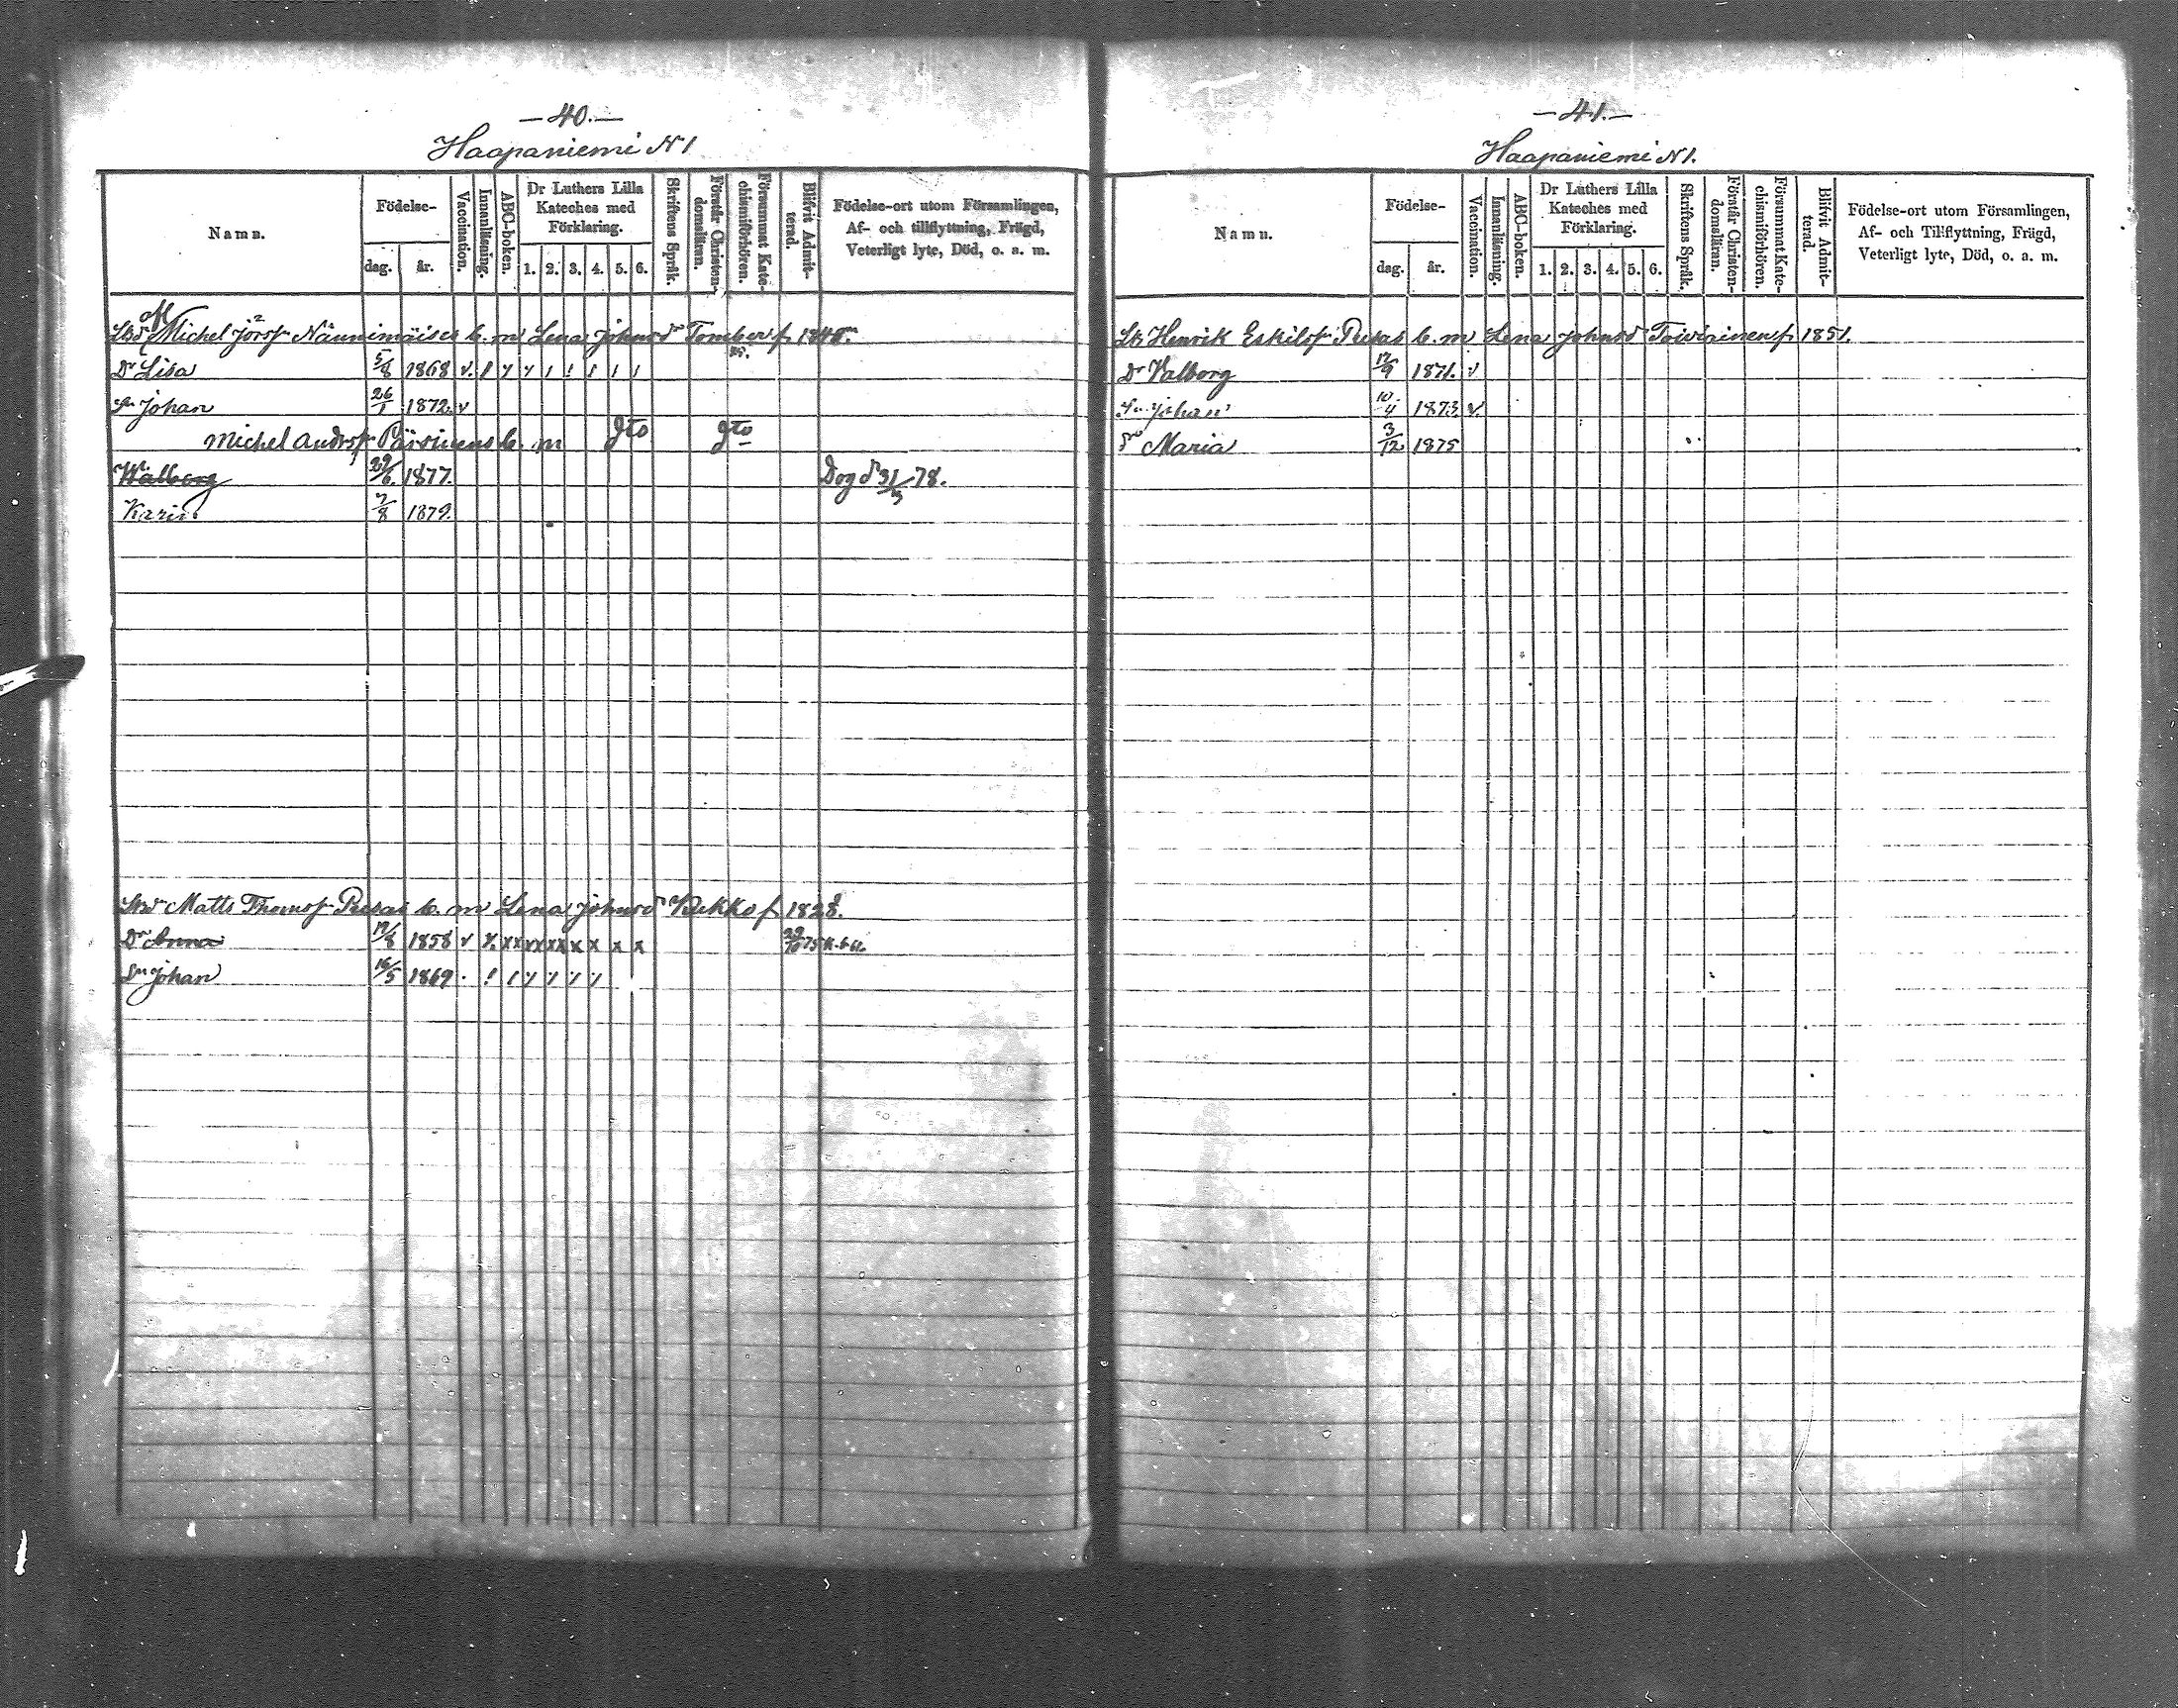 —40.—
Haapaniemi N1
Namn.
Födelse-
dag.
år.
Vaccination.
Innanläsning.
ABC-boken.
Dr Luthers Lilla
Kateches med
Förklaring.
1. 2. 3. 4. 5. 6.
Skriftens Språk.
Förstår Christen-
domsläran.
Försummat Kate-
chismiförhören.
Blifvit Admit-
terad.
Födelse-ort utom Församlingen,
Af- och tillflyttning, Frägd,
Veterligt lyte, Död, o. a. m.
Michel Lena Johnsd
Dr Lisa 5/8 1868 v.
Sn Johan 26/1 1872 v
Michel Andrsf b. m dto dto
Walborg 29/6 1877. Dog d 31/3 78.
Karin 7/8 1879.
Matts Thomsf b. m Lena Johnsd Pekko f. 1828.
Dr Anna 19/8 1858 v x xx xx xx x x x x
Sn Johan 16/5 1869
—41.—
Haapaniemi N1.
Namn.
Födelse-
dag.
år.
Vaccination.
Innanläsning.
ABC-boken.
Dr Luthers Lilla
Kateches med
Förklaring.
1. 2. 3. 4. 5. 6.
Skriftens Språk.
Förstår Christen-
domsläran.
Försummat Kate-
chismiförhören.
Blifvit Admit-
terad.
Födelse-ort utom Församlingen,
Af- och Tillflyttning, Frägd,
Veterligt lyte, Död, o. a. m.
Henrik Eskilsf b. m Lena Johnsd Toiviainen f. 1851.
Dr Valborg 12/9 1871. v
Sn Johan 10/4 1873 v.
Dr Maria 3/12 1875